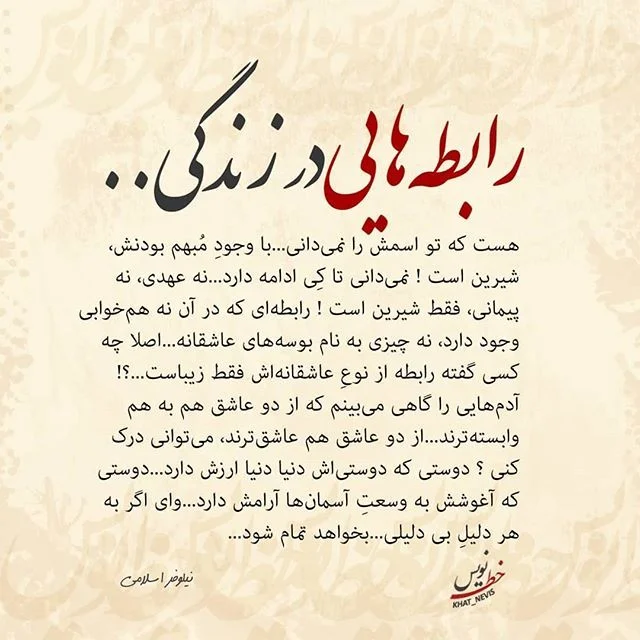 رابطه‌هایی در زندگی..
هست که تو اسمش را نمی‌دانی...با وجودِ مُبهم بودنش،
شیرین است ! نمی‌دانی تا کِی ادامه دارد...نه عهدی، نه
پیمانی، فقط شیرین است ! رابطه‌ای که در آن نه هم‌خوابی
وجود دارد، نه چیزی به نام بوسه‌های عاشقانه...اصلا چه
کسی گفته رابطه از نوعِ عاشقانه‌اش فقط زیباست...؟!
آدم‌هایی را گاهی می‌بینم که از دو عاشق هم به هم
وابسته‌ترند...از دو عاشق هم عاشق‌ترند، می‌توانی درک
کنی ؟ دوستی که دوستی‌اش دنیا دنیا ارزش دارد...دوستی
که آغوشش به وسعتِ آسمان‌ها آرامش دارد...وای اگر به
هر دلیلِ بی دلیلی...بخواهد تمام شود...
نیلوفر اسلامی
خط نویس
KHAT_NEVIS